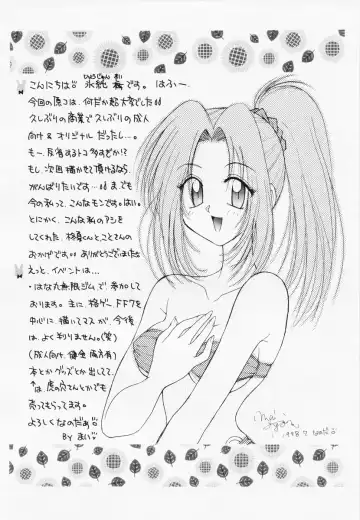 こんにちは 氷純 舞です。はふ〜
今回の原コは、何だか超大変でした
久しぶりの商業で久しぶりの成人
向け&オリジナルだったし…。
も〜、反省するトコ多すぎか!?
もし、次回描かせて頂けるなら、
がんばりたいです…。までも
今の私って、こんなモンです。はい。
とにかく、こんな私のアシを
してくれた、格君くんとことさんの
おかげです ありがとうございました
えっと、イベントは…
・はなれ無限ジムで参加して
おります。主に、格ゲー、FF7を
中心に描いてマスが、今後
は、よく判りません。(笑)
(成人向け、健全両方有)
本とかグッズとか出してて、
は虎の穴さんとかでも
売ってもらってます。
よろしくなのだぁ
By まい
1998.7